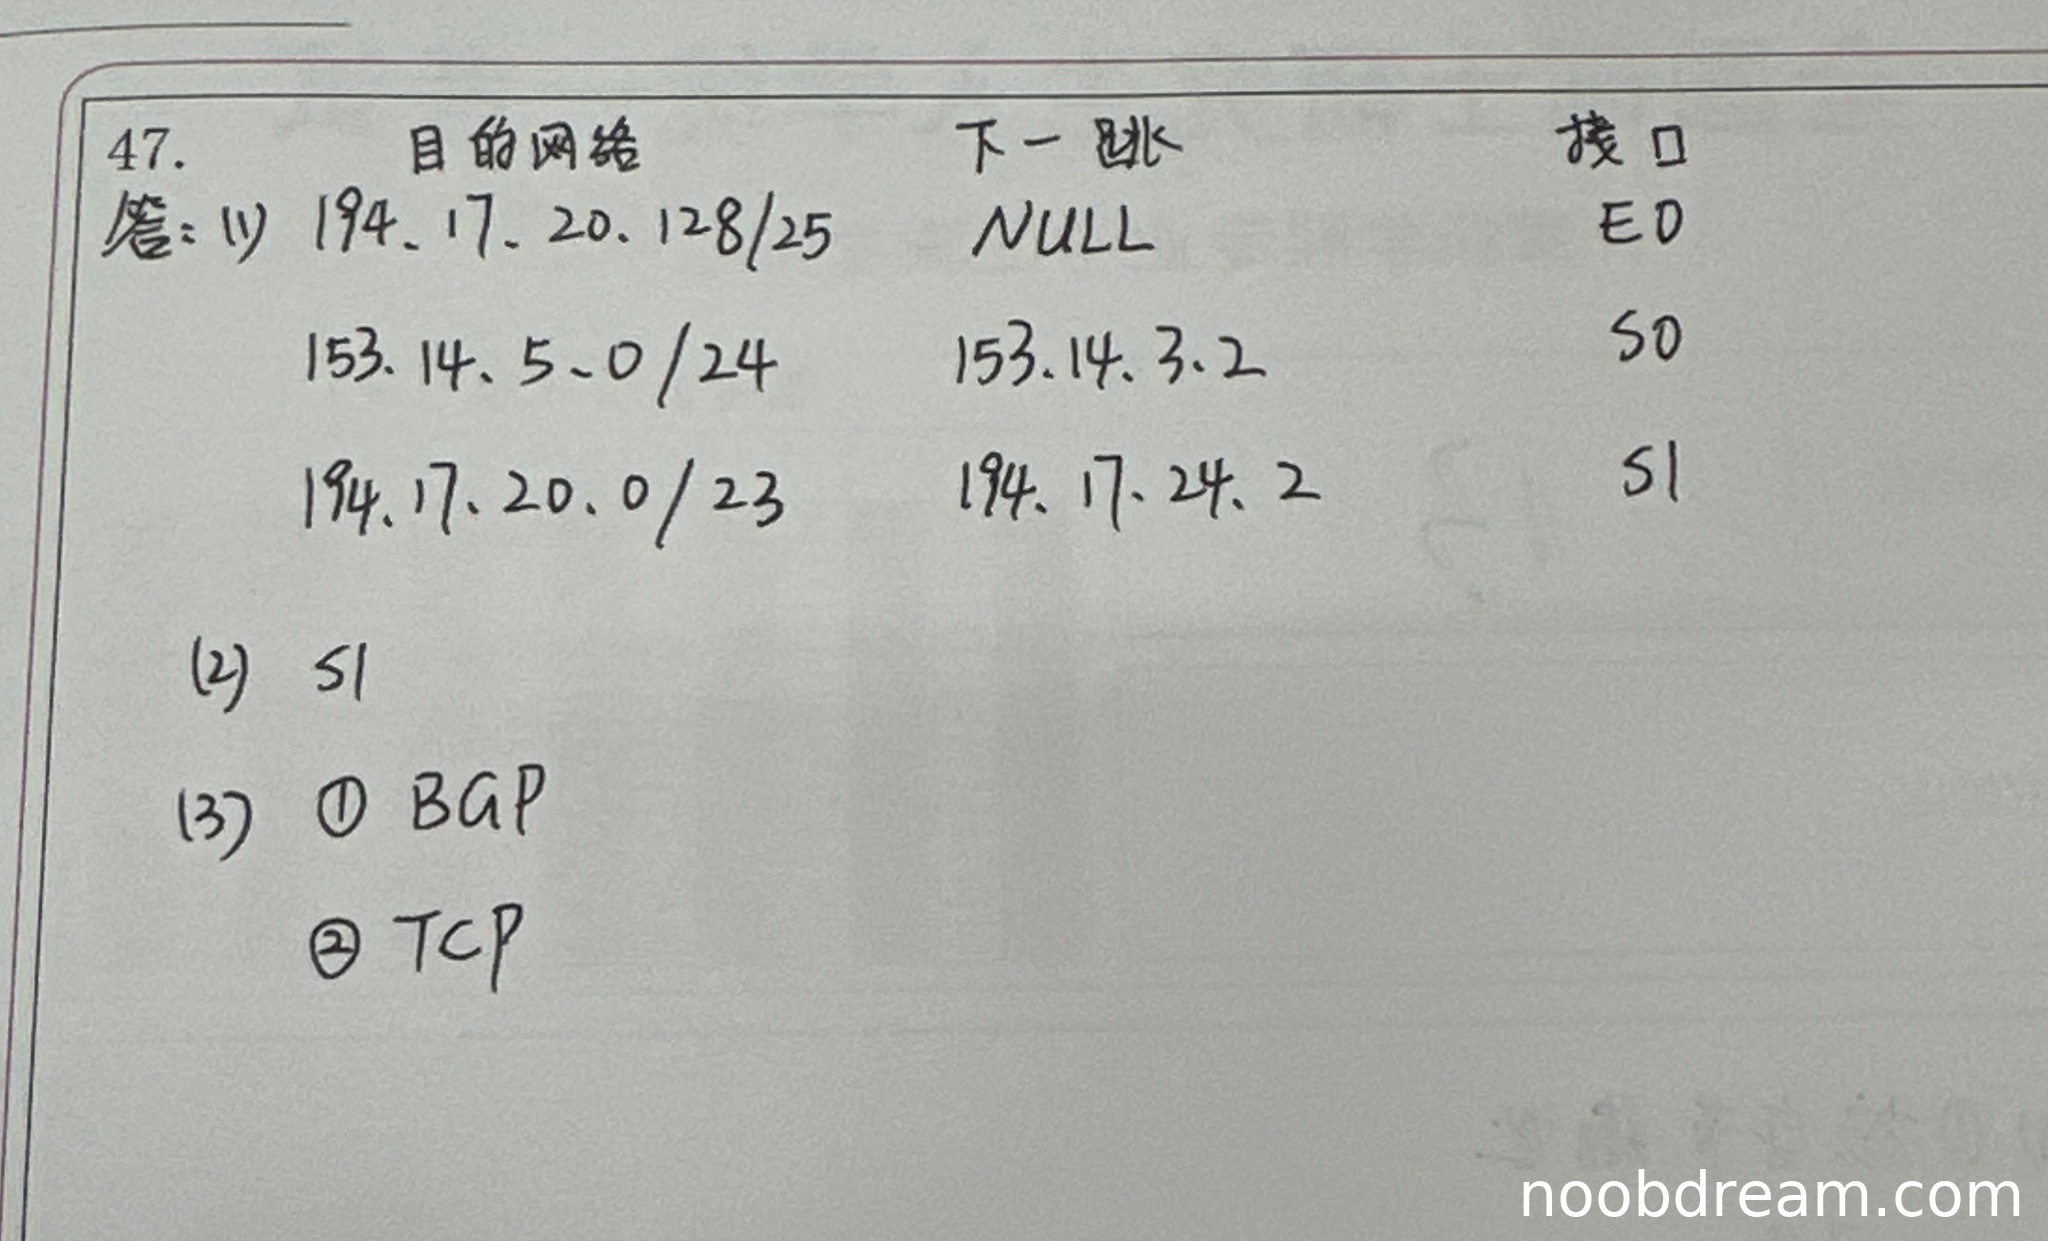 47. 目的网络 下一跳 接口
答: (1) 194.17.20.128/25 NULL E0
153.14.5.0/24 153.14.3.2 S0
194.17.20.0/23 194.17.24.2 S1
(2) S1
(3) ① BGP
② TCP
noobdream.com